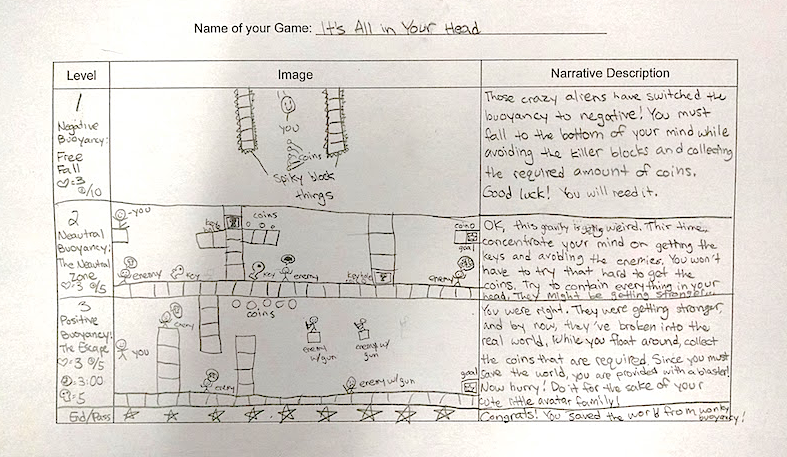 Name of your Game: It's All in Your Head
Level
Image
Narrative Description
1
Negative
Buoyancy:
Free
Fall
♡=3
/10
you
coins
Spiky block
things
Those crazy aliens have switched the
buoyancy to negative! You must
fall to the bottom of your mind while
avoiding the killer blocks and collecting
the required amount of coins.
Good luck! You will need it.
2
Neautral
Buoyancy:
The Neautral
Zone
♡=3 /5
-you
key
coins
coin
goal
enemy
key
key
enemy
enemy
OK, this gravity is getting weird. This time,
concentrate your mind on getting the
keys and avoiding the enemies. You won't
have to try that hard to get the
coins. Try to contain everything in your
head. They might be getting stronger...
3
Positive
Buoyancy:
The Escape
♡=3 /5
=3:00
=5
you
enemy
coins
enemy
w/gun
enemy w/
gun
enemy
enemy w/gun
goal
You were right. They were getting stronger,
and by now, they've broken into the
real world. While you float around, collect
the coins that are required. Since you must
save the world, you are provided with a blaster!
Now hurry! Do it for the sake of your
cute little avatar family!
End/Pass
Congrats! You saved the world from wonky
buoyancy!